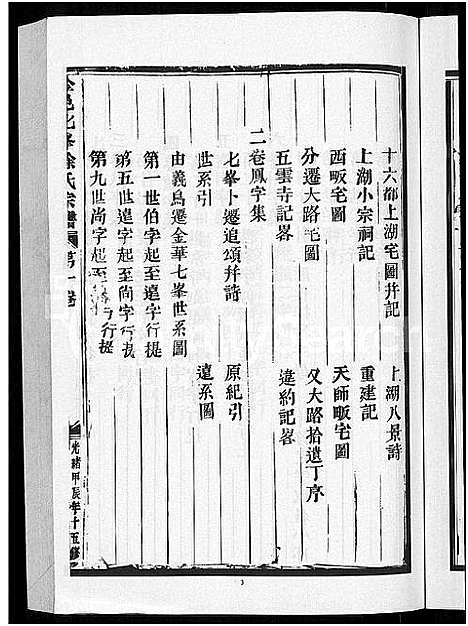 十六都上湖宅圖并記 上湖八景詩
上湖小宗祠記 重建記
西畈宅圖 天師畈宅圖
分遷大路宅圖 又大路拾遺丁序
五雲寺記畧 違約記畧
二卷鳳字集
七峯卜遷追頌并詩 原紀引
世系引 遠系圖
由義烏遷金華七峯世系圖
第一世伯字起至遠字行提
第五世遠字起至尚字行提
第九世尚字起至 字行提
徐氏宗譜 第一卷
光緒甲辰年十五修